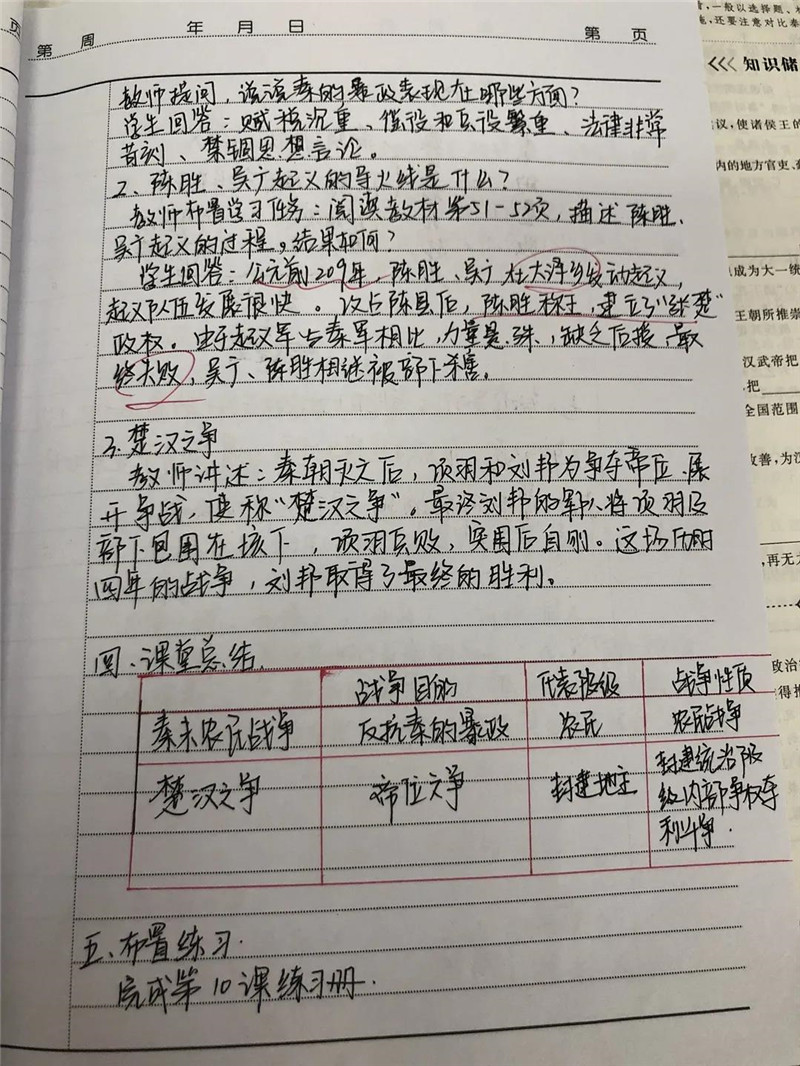 页
第 周 年 月 日 第 页
教师提问，谈谈秦的暴政表现在哪些方面？
学生回答：赋税沉重、徭役和兵役繁重、法律非常
苛刻、禁锢思想言论。
2、陈胜、吴广起义的导火线是什么？
教师布置学习任务：阅读教材第51-52页，描述陈胜、
吴广起义的过程。结果如何？
学生回答：公元前209年，陈胜、吴广在大泽乡发动起义，
起义队伍发展很快。攻占陈县后，陈胜称王，建立了“张楚”
政权。由于起义军与秦军相比，力量悬殊，缺乏后援，最
终失败，吴广、陈胜相继被部下杀害。
3、楚汉之争
教师讲述：秦朝灭亡后，项羽和刘邦为争夺帝位，展
开争战，史称“楚汉之争”。最终刘邦的军队将项羽及
部下包围在垓下，项羽兵败，突围后自刎。这场历时
四年的战争，刘邦取得了最终的胜利。
四、课堂总结
战争目的 代表阶级 战争性质
秦末农民战争 反抗秦的暴政 农民 农民战争
楚汉之争 帝位之争 封建地主 封建统治阶
级内部争权夺
利斗争.
五、布置练习.
完成第10课练习册.
，一般以选择题、
施，还要注意对比秦
<<< 知识储
议，使诸侯王的
内的地方官吏、
成为大一统
王朝所推崇
汉武帝把
把
全国范围
改善，为汉
，再无
政治
得推